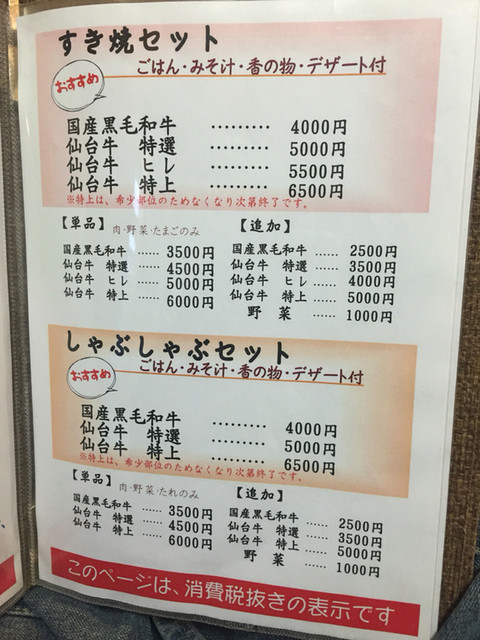 すき焼セット
おすすめ
ごはん・みそ汁・香の物・デザート付
国産黒毛和牛 ……… 4000円
仙台牛 特選 ……… 5000円
仙台牛 ヒレ ……… 5500円
仙台牛 特上 ……… 6500円
※特上は、希少部位のためなくなり次第終了です。
【単品】 肉・野菜・たまごのみ
国産黒毛和牛 …… 3500円
仙台牛 特選 …… 4500円
仙台牛 ヒレ …… 5000円
仙台牛 特上 …… 6000円
【追加】
国産黒毛和牛 …… 2500円
仙台牛 特選 …… 3500円
仙台牛 ヒレ …… 4000円
仙台牛 特上 …… 5000円
野 菜 …… 1000円
しゃぶしゃぶセット
おすすめ
ごはん・みそ汁・香の物・デザート付
国産黒毛和牛 ……… 4000円
仙台牛 特選 ……… 5000円
仙台牛 特上 ……… 6500円
※特上は、希少部位のためなくなり次第終了です。
【単品】 肉・野菜・たれのみ
国産黒毛和牛 …… 3500円
仙台牛 特選 …… 4500円
仙台牛 特上 …… 6000円
【追加】
国産黒毛和牛 …… 2500円
仙台牛 特選 …… 3500円
仙台牛 特上 …… 5000円
野 菜 …… 1000円
このページは、消費税抜きの表示です